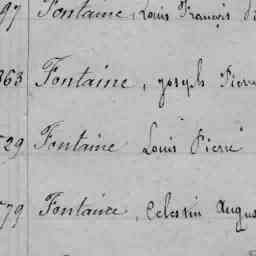 97 Fontaine, Louis François
363 Fontaine, Joseph Pierre
529 Fontaine Louis Pierre
579 Fontaine, Celestin Augus